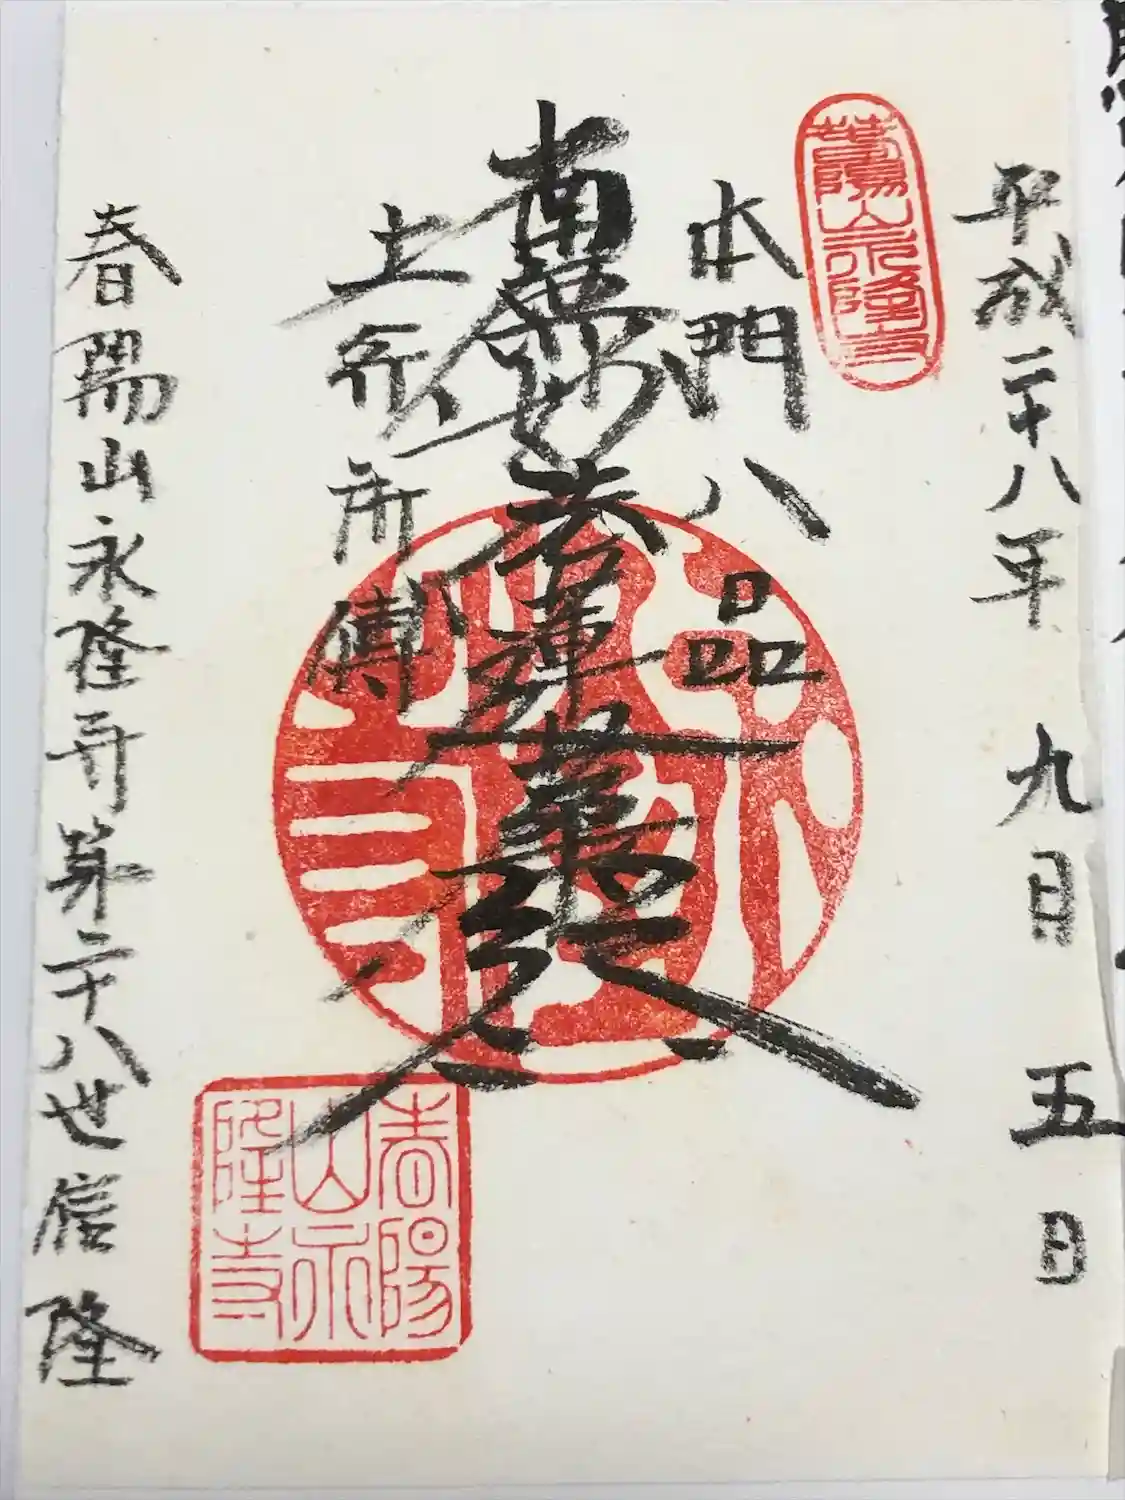 平成二十八年 九日 五日
春陽山永隆寺
本門八品
南無妙法蓮華経
上行所傳
春陽山永隆寺第二十八世信隆
春陽山永隆寺